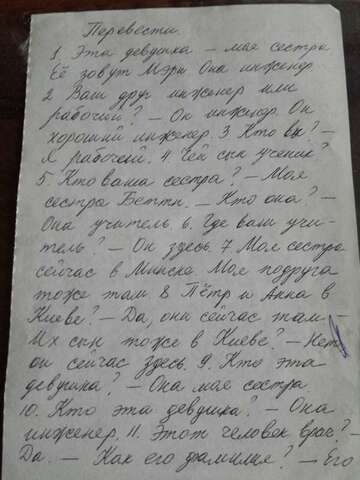 Перевести.
1. Эта девушка – моя сестра
Её зовут Мэри. Она инженер.
2 Ваш друг инженер или
рабочий? – Он инженер. Он
хороший инженер. 3. Кто вы? –
Я рабочий. 4 Чей сын ученик?
5. Кто ваша сестра? – Моя
сестра Бетти. – Кто она? –
Она учитель. 6. Где ваш учи-
тель? – Он здесь. 7 Моя сестра
сейчас в Минске. Моя подруга
тоже там. 8 Пётр и Анна в
Киеве? – Да, они сейчас там –
Их сын тоже в Киеве? – Нет,
он сейчас здесь. 9. Кто эта
девушка? – Она моя сестра
10. Кто эта девушка? – Она
инженер. 11. Этот человек врач? –
Да. – Как его фамилия? – Его